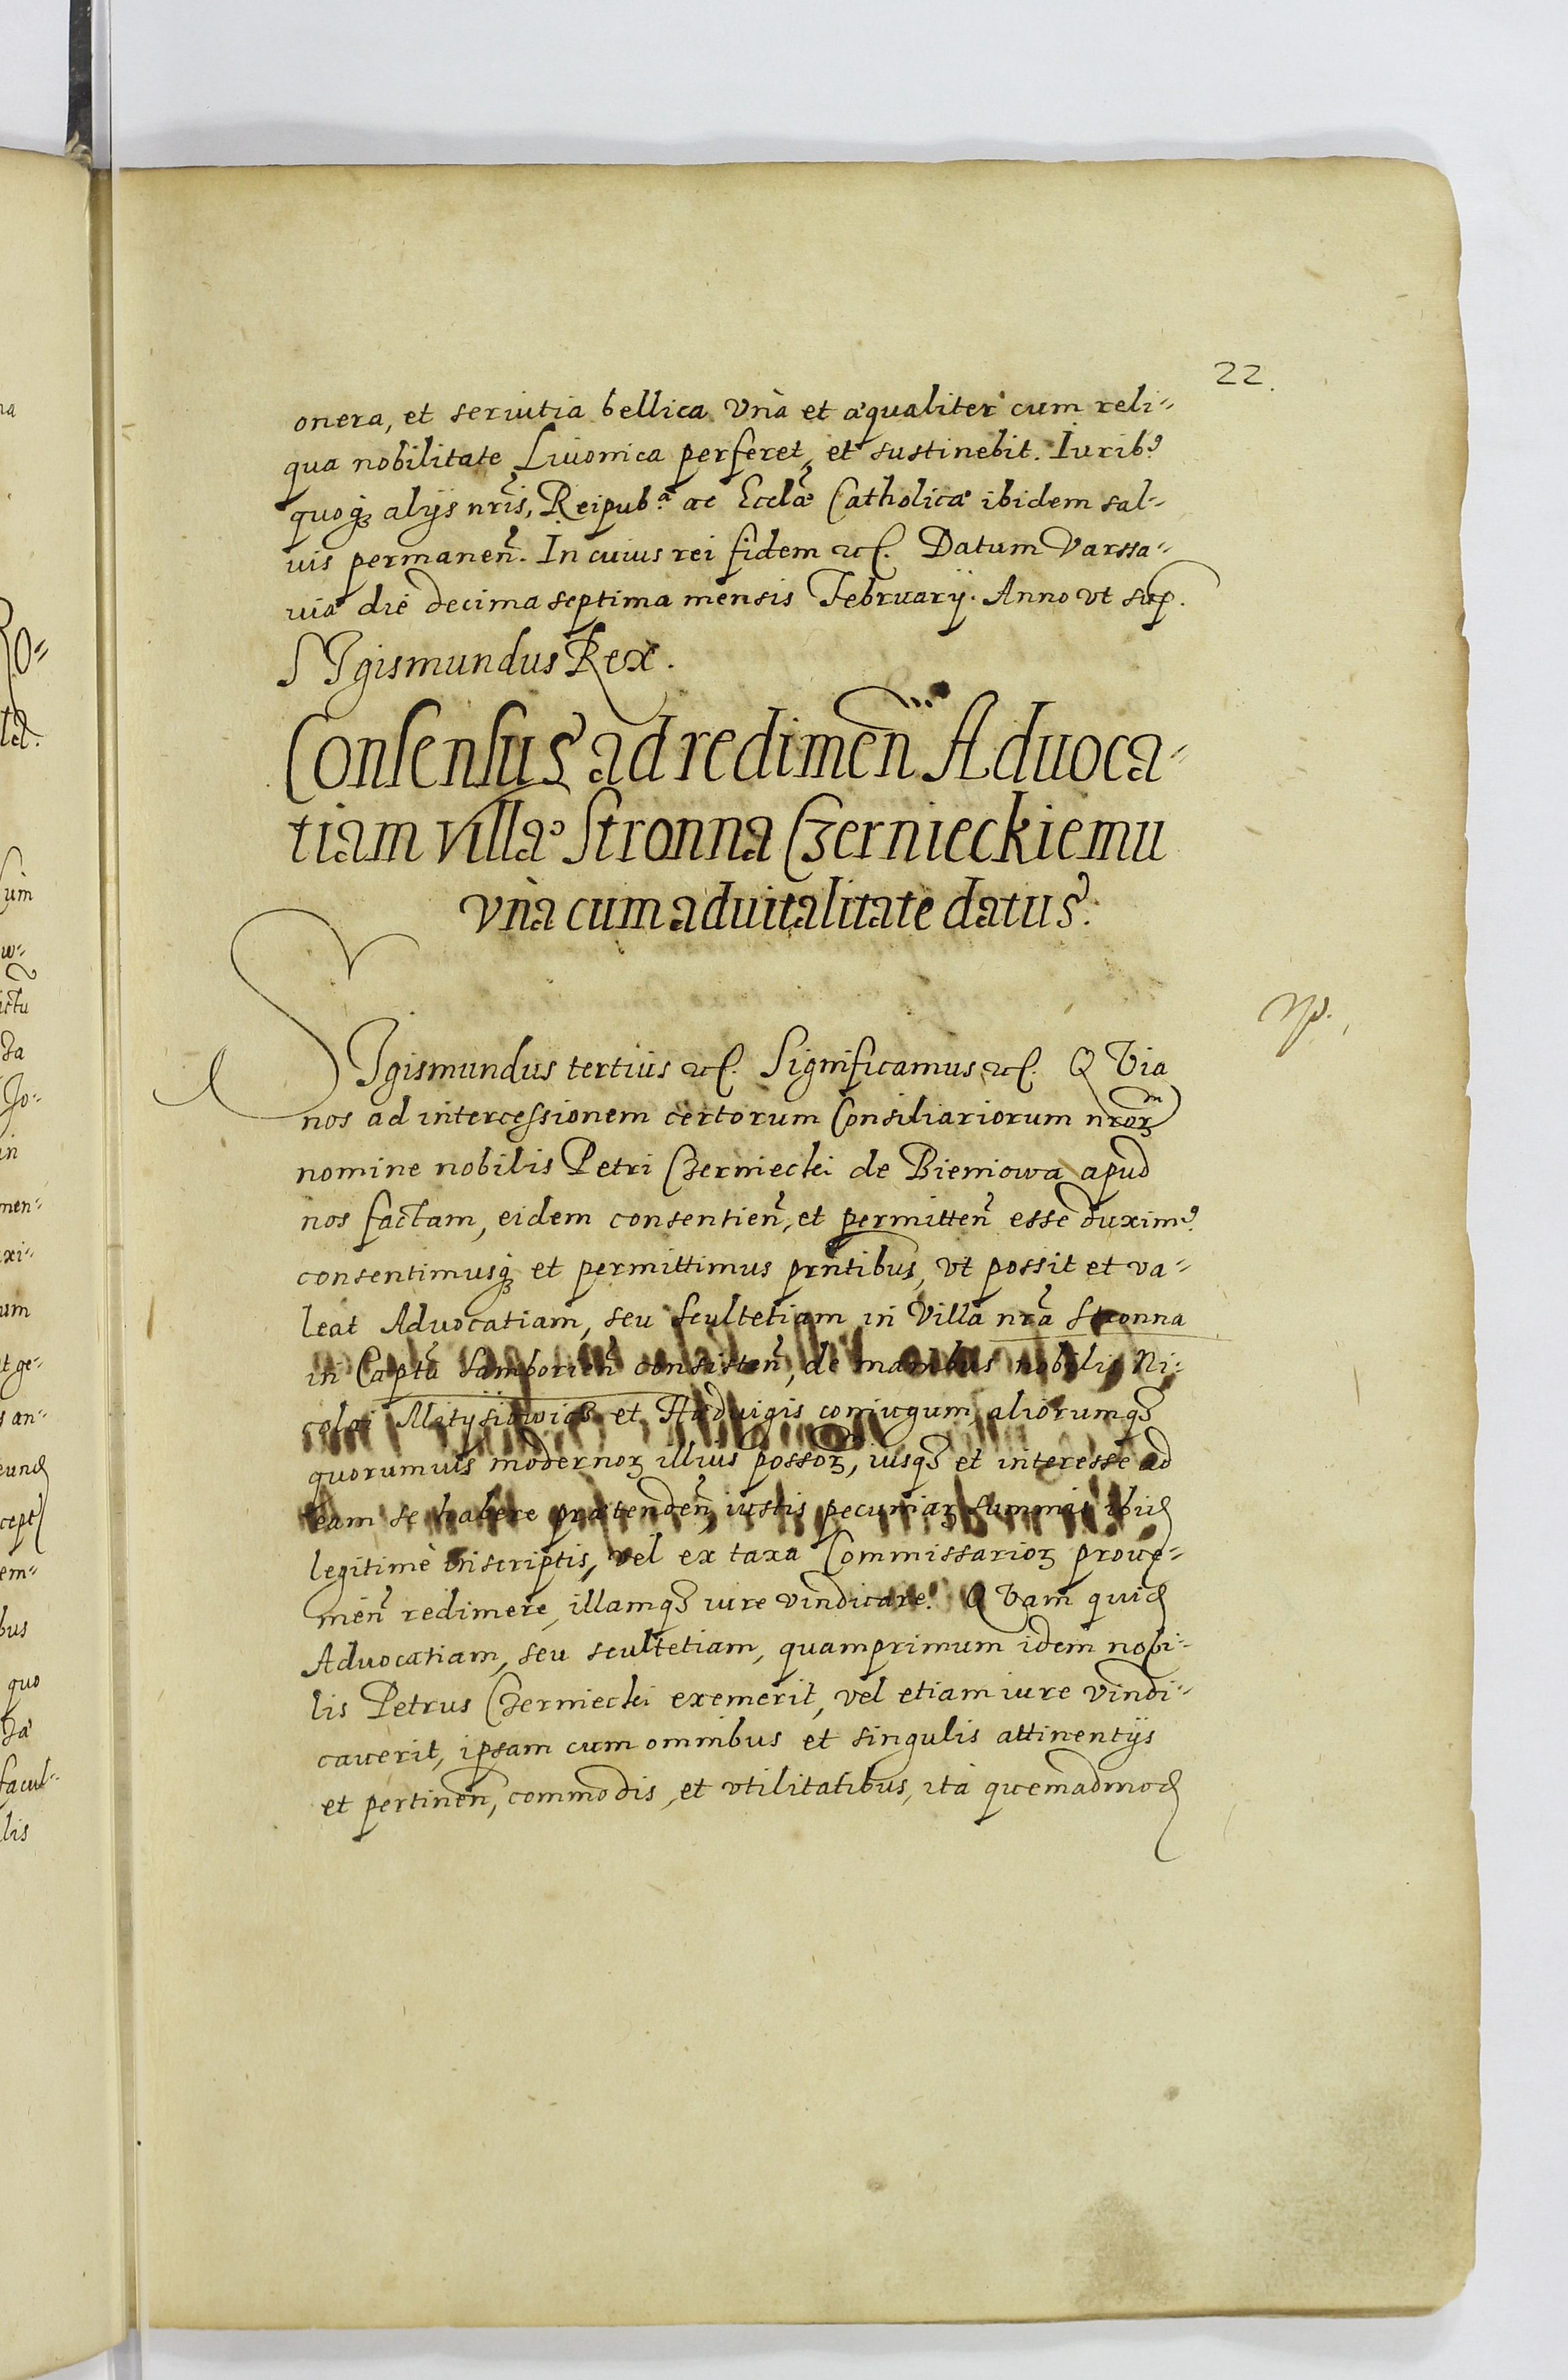 22.
onera, et seruitia bellica vnà et æqualiter cum reli-
qua nobilitate Liuonica perferet, et sustinebit. Iurib9
quoq3 alijs nris, Reipub.a ac Ecclæ Catholicæ ibidem sal-
uis permanen. In cuius rei fidem etc. Datum Varssa-
uiæ die decima septima mensis February. Anno vt sup.
SIgismundus Rex.
Consensus ad redimen Aduoca-
tiam villæ Stronna Czernieckiemu
vnà cum aduitalitate datus.
SIgismundus tertius etc. Significamus etc. QVia
nos ad intercessionem certorum Consiliariorum nror
nomine nobilis Petri Czerniecki de Bieniowa apud
nos factam, eidem consentien, et permitten esse duxim9
consentimusq3 et permittimus prntibus, vt possit et va-
leat Advocatiam, seu scultetiam in Villa nra Stronna
in Captu Samborien consisten, de manibus nobilis Ni-
colai Matysiowicz et Haduigis coniugum, aliorumq3
quorumuis modernor illius possor, iusq3 et interesse ad
eam se habere prætenden, iustis pecuniar summis ibid
legitimè inscriptis, vel ex taxa Commissarior proue-
nien redimere, illamq3 iure vindicare. QVam quid
Advocatiam, seu scultetiam, quamprimum idem nobi-
lis Petrus Czerniecki exemerit, vel etiam iure vindi-
cauerit, ipsam cum omnibus et singulis attinentijs
et pertinen, commodis, et vtilitatibus, ita quemadmod